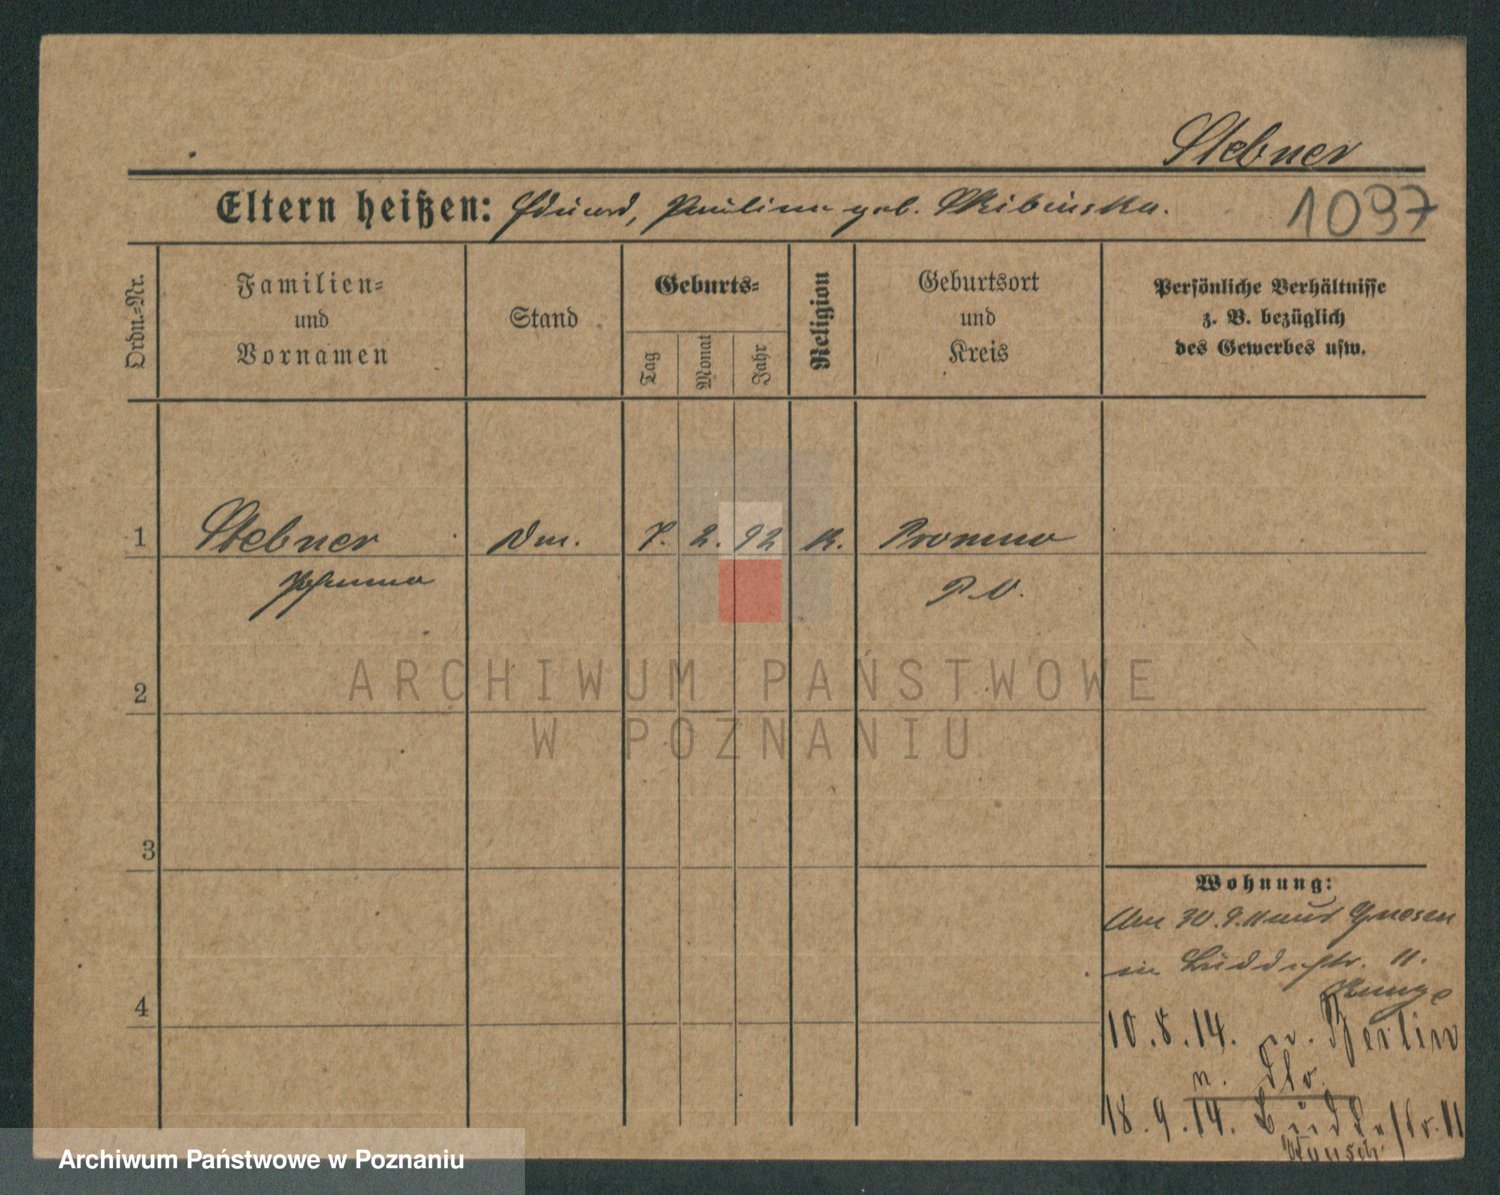 Stebner
Eltern heißen: Eduard, Paulina geb. Skibinska.
1097
Ordn.-Nr.
Familien-
und
Vornamen
Stand
Geburts-
Tag
Monat
Jahr
Religion
Geburtsort
und
Kreis
Persönliche Verhältnisse
z. B. bezüglich
des Gewerbes usw.
1 Stebner 7. 2. 92 K. Promno
Johanna P. O.
2
3
4
ARCHIWUM PAŃSTWOWE
W POZNANIU
Wohnung:
Am 30. 9. 11 aus Gnesen
in Buddestr. 11.
Runge
10.8.14. n. Berlin
n. dto.
18.9.14. Buddestr. 11
Archiwum Państwowe w Poznaniu